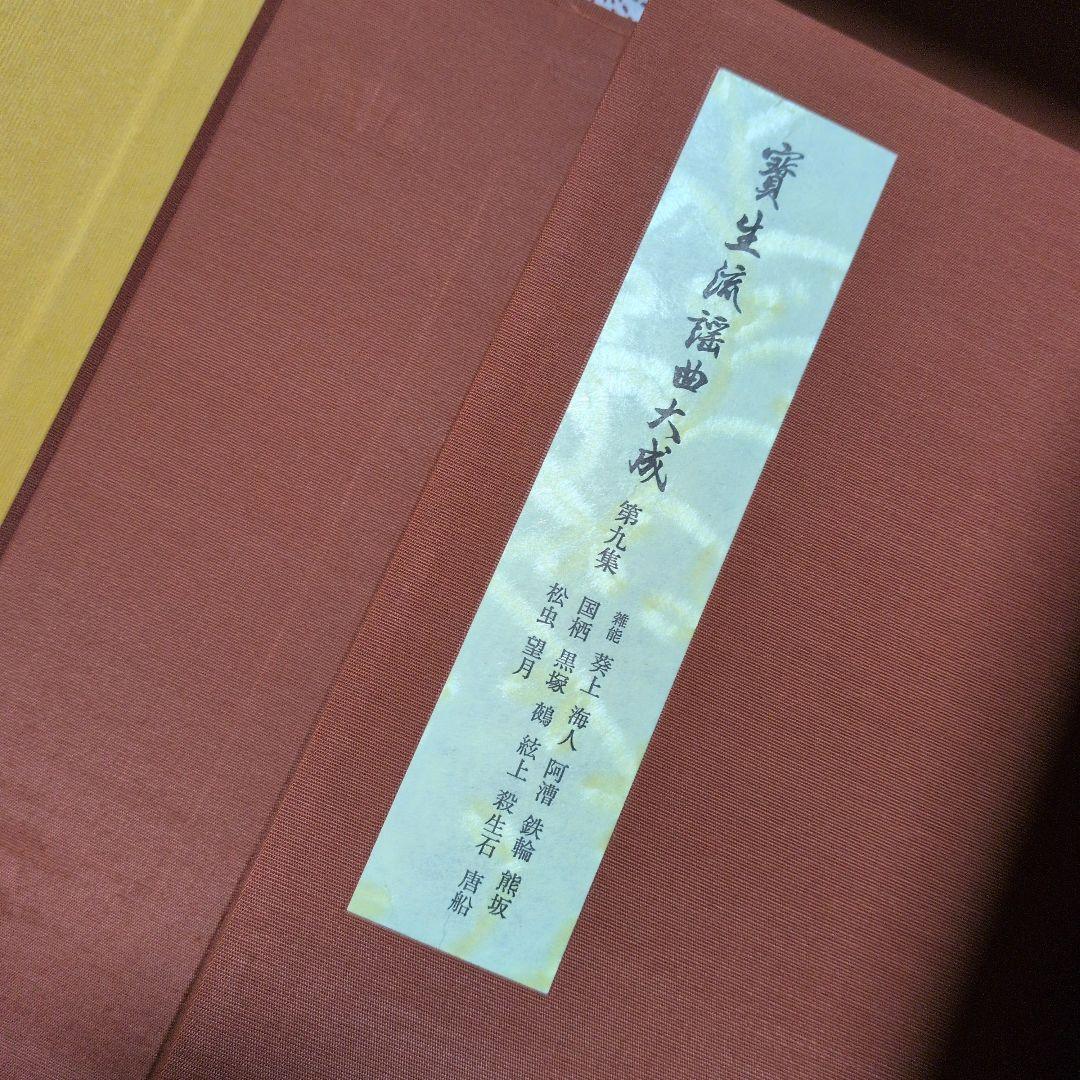 寶生流謡曲大成 第九集
雑能 葵上 海人 阿漕 鉄輪 熊坂
国栖 黒塚 鵺 絃上 殺生石 唐船
松虫 望月